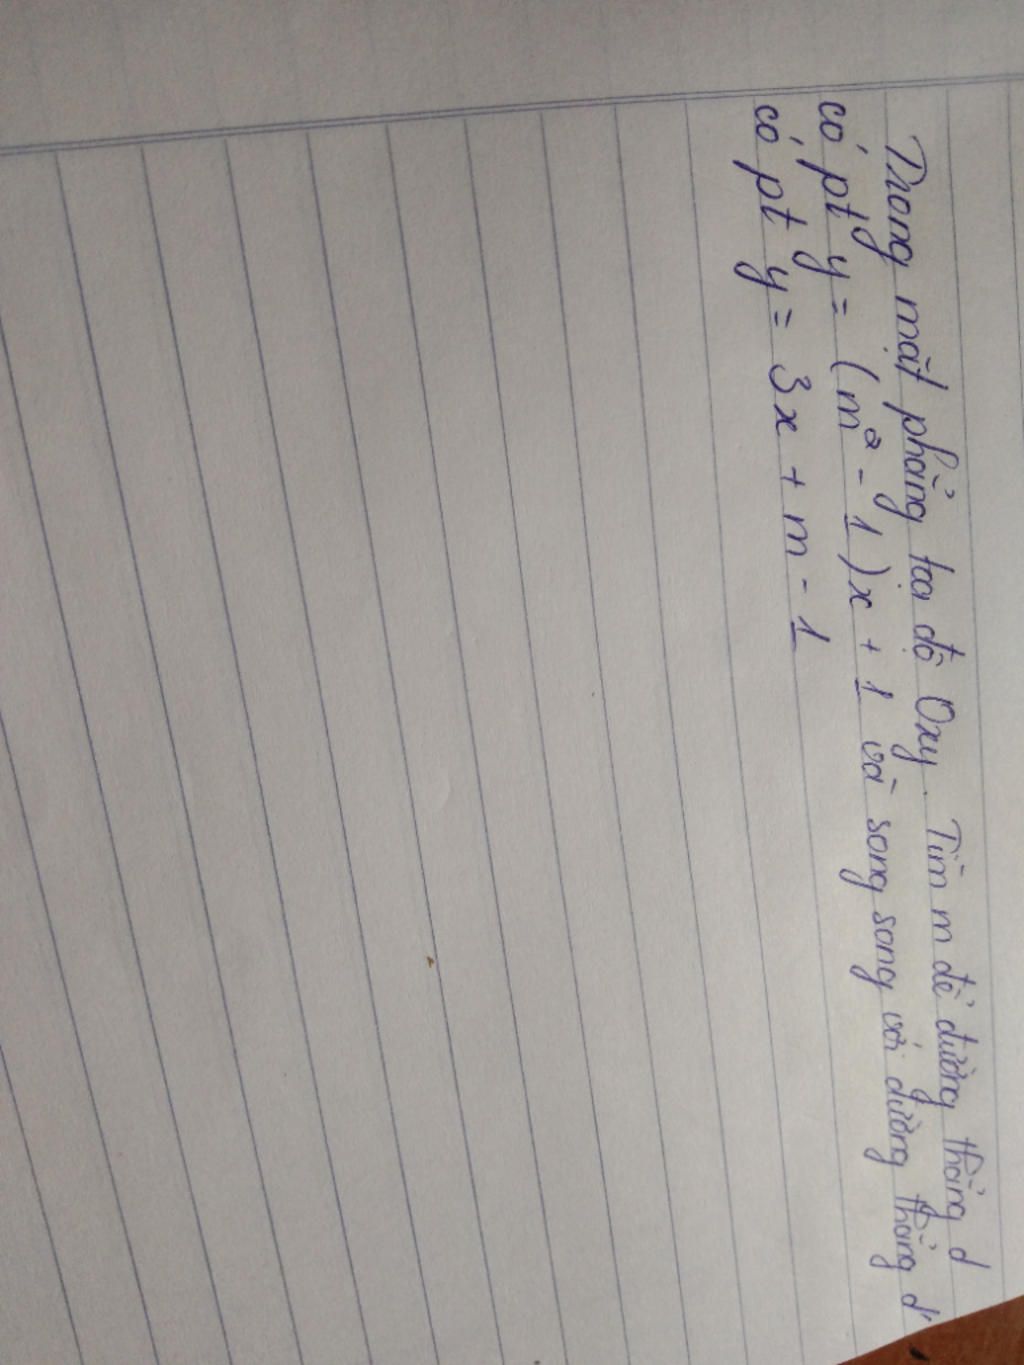 Trong mặt phẳng tọa độ Oxy. Tìm m để đường thẳng d
có pt y = (m² - 1)x + 1 và song song với đường thẳng d'
có pt y = 3x + m - 1